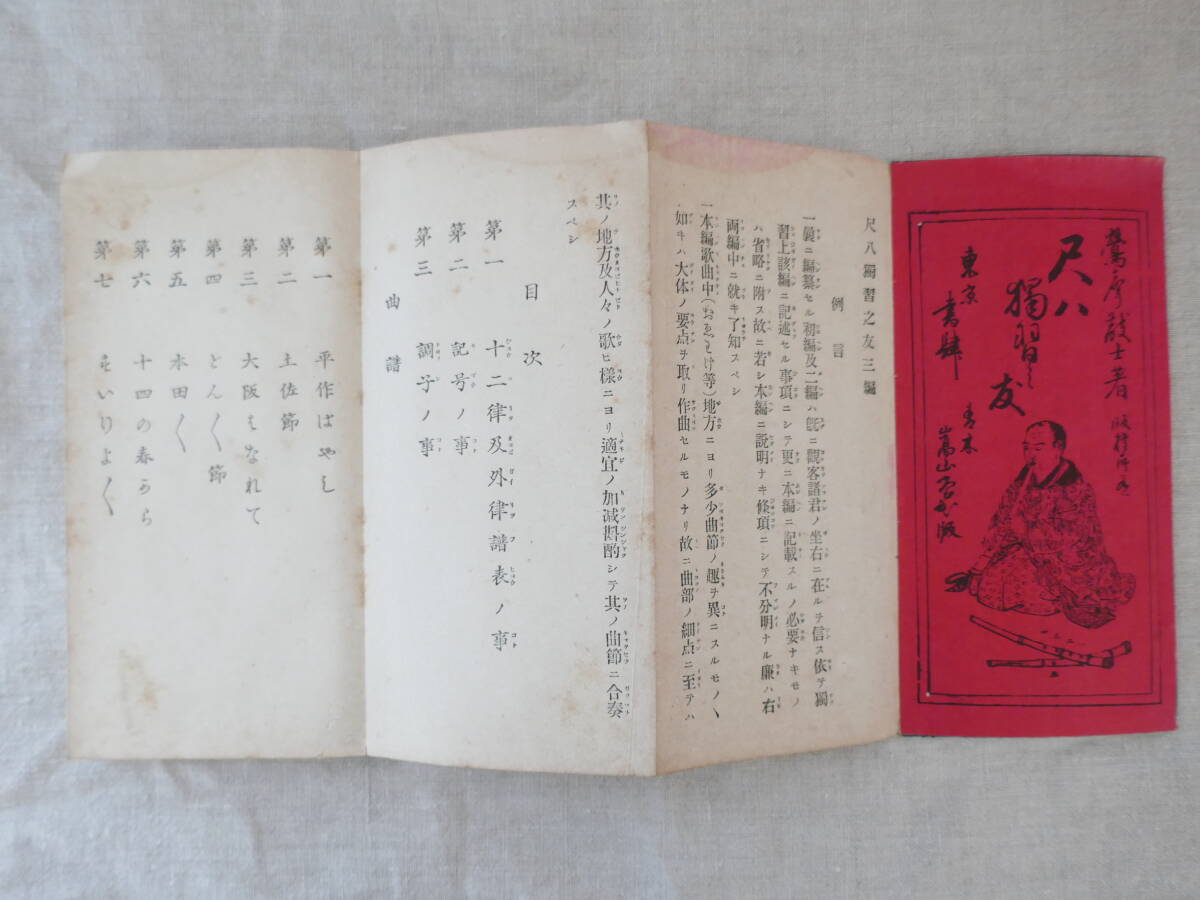 士著
尺八
獨習之友
東京
書肆
青木
嵩山堂
尺八獨習之友三編
例言
一曩ニ編纂セル初編及二編ハ既ニ觀客諸君ノ坐右ニ在ルヲ信ス依テ獨
習上該編ニ記述セル事項ニシテ更ニ本編ニ記載スルノ必要ナキモノ
ハ省略ニ附ス故ニ若シ本編ニ説明ナキ條項ニシテ不分明ナル廉ハ右
両編中ニ就キ了知スベシ
一本編歌曲中(おゐとけ等)地方ニヨリ多少曲節ノ趣ヲ異ニスルモノヽ
如キハ大体ノ要点ヲ取リ作曲セルモノナリ故ニ曲部ノ細点ニ至テハ
其ノ地方及人々ノ歌ヒ様ニヨリ適宜ノ加減斟酌シテ其ノ曲節ニ合奏
スベシ
目次
第一 十二律及外律譜表ノ事
第二 記号ノ事
第三 調子ノ事
曲譜
第一 平作ばやし
第二 土佐節
第三 大阪はなれて
第四 とん〱節
第五 木田〱
第六 十四の春から
第七 いりよ〱